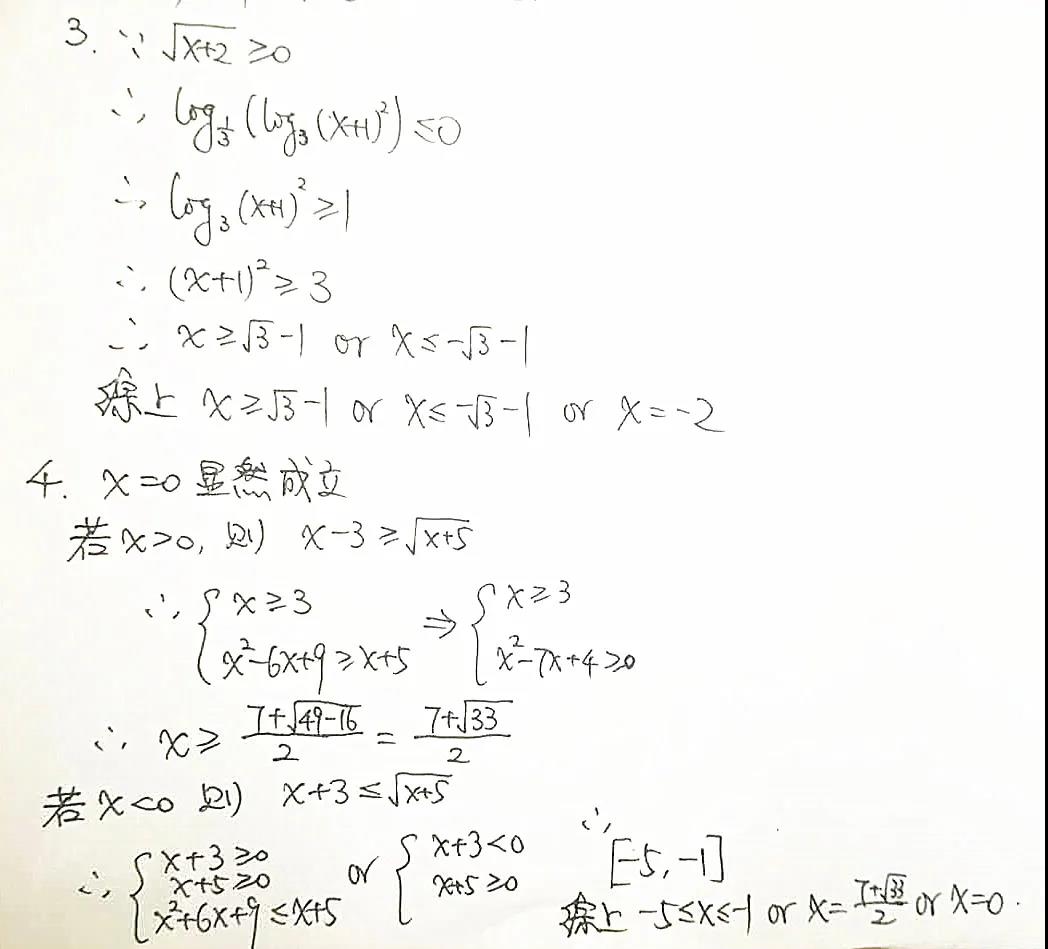 3. ∵ √(x+2) ≥0
∴ log_{1/3}(log_3(x+1)^2) ≤0
∴ log_3(x+1)^2 ≥1
∴ (x+1)^2 ≥ 3
∴ x ≥ √3 -1 or x ≤ -√3 -1
综上 x ≥ √3 -1 or x ≤ -√3 -1 or x = -2
4. x=0 显然成立
若 x>0, 则 x-3 ≥ √(x+5)
∴ { x ≥ 3 ⇒ { x ≥ 3
x^2-6x+9 ≥ x+5 x^2-7x+4 ≥0
∴ x ≥ (7+√(49-16))/2 = (7+√33)/2
若 x<0 则 x+3 ≤ √(x+5)
∴ { x+3 ≥0 or { x+3<0
x+5 ≥0 x+5 ≥0
x^2+6x+9 ≤ x+5
∴ [-5, -1]
综上 -5≤x≤-1 or x= (7+√33)/2 or x=0.